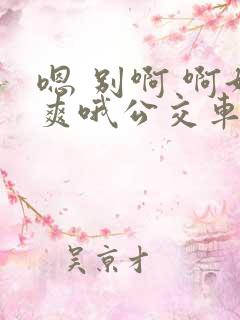 嗯 别啊 啊好
爽哦公交车
吴京才